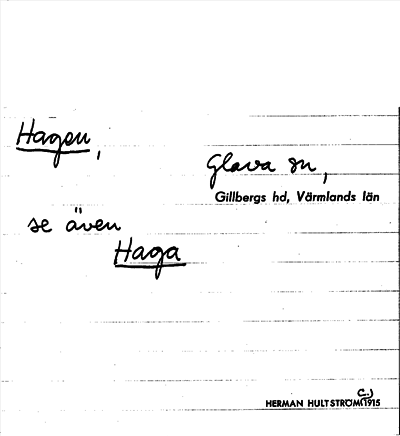 Hagen,
Glava sn,
Gillbergs hd, Värmlands län
se även
Haga
HERMAN HULTSTRÖM (C.) 1915